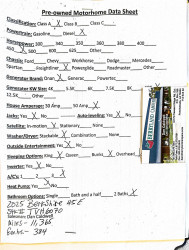 Pre-owned Motorhome Data Sheet
Classification: Class A X Class B Class C
Powertrain: Gasoline Diesel X
Horsepower: 300 340 350 360 380 400
450 500 600
Chassis: Ford Chevy Workhorse Dodge Mercedes
Spartan Freightliner X Powerglide Roadmaster Other
Generator Brand: Onan X Generac Powertec
Generator KW Size:
12.5K Other
House Amperage: 30 Amp 50 Amp X
Jacks: Yes X No Auto-leveling: Yes X No
Satellite: In-motion Stationary None
Washer/Dryer: Stackable X Combination None
Outside Entertainment: Yes X No
Sleeping Options: King X Queen Bunks X Overhead
Inverter: Yes X No
A/C's: 1 2 3 X
Heat Pump: Yes X No
Bathroom Options: Single Bath and a half 2 Baths X
2025 Berkshire 45E
Stk# TVH6070
Miles - 11,365